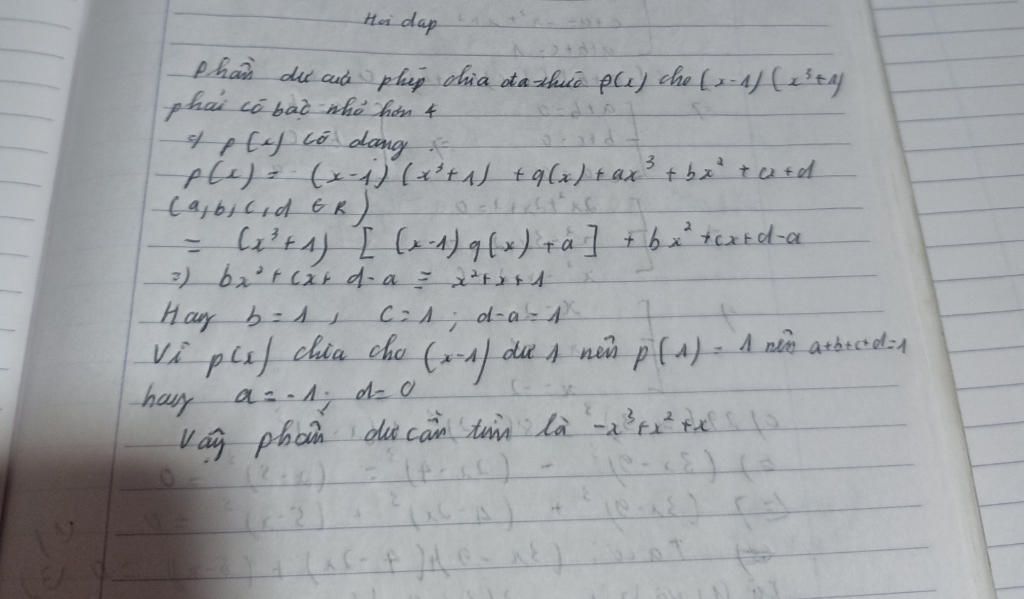 Hỏi đap
phần dư của phép chia đa thức p(x) cho (x-1)(x³+1)
phải có bậc nhỏ hơn 4
=> p(x) có dạng
p(x) = (x-1)(x³+1) + q(x) + ax³ + bx² + cx + d
(a,b,c,d ∈ R)
= (x³+1) [(x-1)q(x) + a] + bx² + cx + d-a
=> bx² + cx + d-a = x²+x+1
Hay b=1, c=1; d-a=1
Vì p(x) chia cho (x-1) dư 1 nên p(1) = 1 nên a+b+c+d=1
hay a=-1; d=0
Vậy phần dư cần tìm là -x³+x²+x